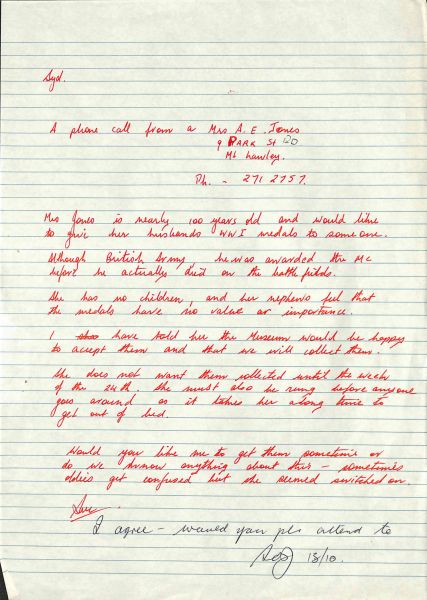 Syd.
A phone call from a Mrs A. E. Jones
9 PARK St 120
Mt Lawley.
Ph. - 271 2757.
Mrs Jones is nearly 100 years old and would like
to give her husbands WWI medals to someone.
Although British Army, he was awarded the MC
before he actually died on the battlefields.
She has no children, and her nephews feel that
the medals have no value or importance.
I have told her the Museum would be happy
to accept them and that we will collect them.
She does not want them collected until the week
of the 24th. She must also be rung before anyone
goes around as it takes her along time to
get out of bed.
Would you like me to get them sometime or
do we know anything about this - sometimes
oldies get confused but she seemed switched on.
I agree - would you pls attend to
13/10.